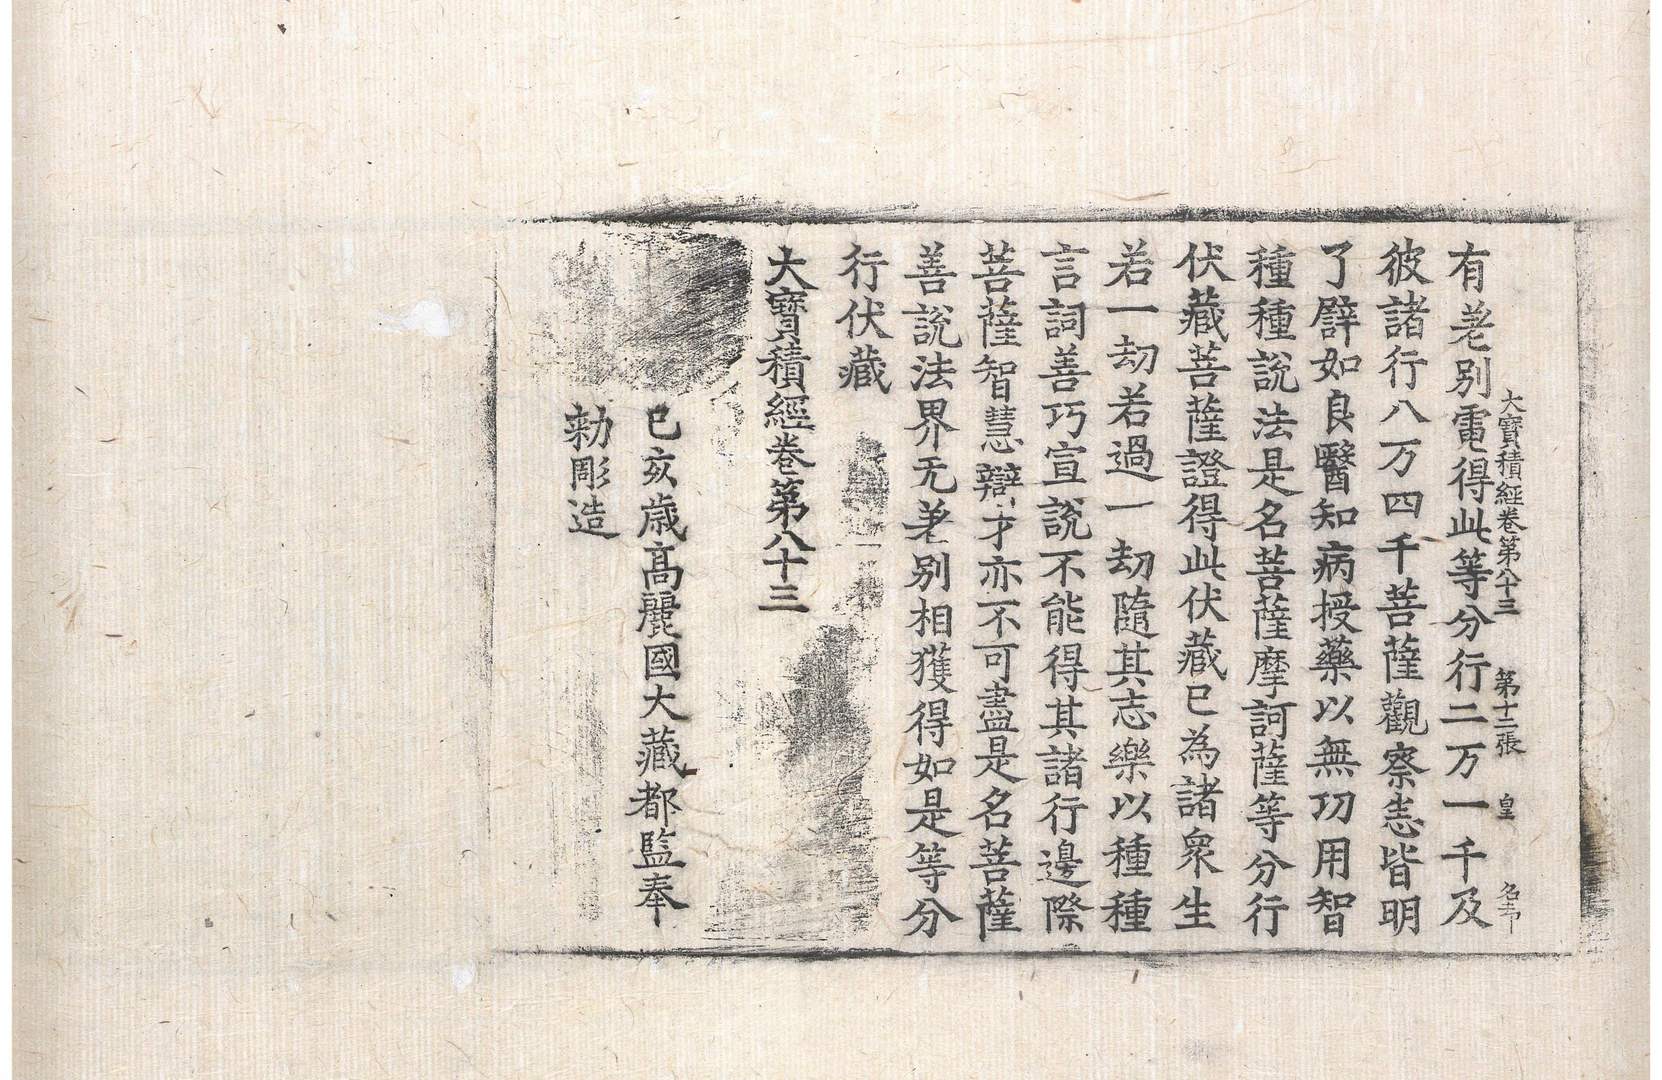 大寶積經卷第八十三 第十二張 皇
有差別電得此等分行二万一千及
彼諸行八万四千菩薩觀察悉皆明
了譬如良醫知病授藥以無功用智
種種說法是名菩薩摩訶薩等分行
伏藏菩薩證得此伏藏已為諸眾生
若一劫若過一劫隨其志樂以種種
言詞善巧宣說不能得其諸行邊際
菩薩智慧辯才亦不可盡是名菩薩
善說法界无差別相獲得如是等分
行伏藏
大寶積經卷第八十三
己亥歲高麗國大藏都監奉
勑彫造